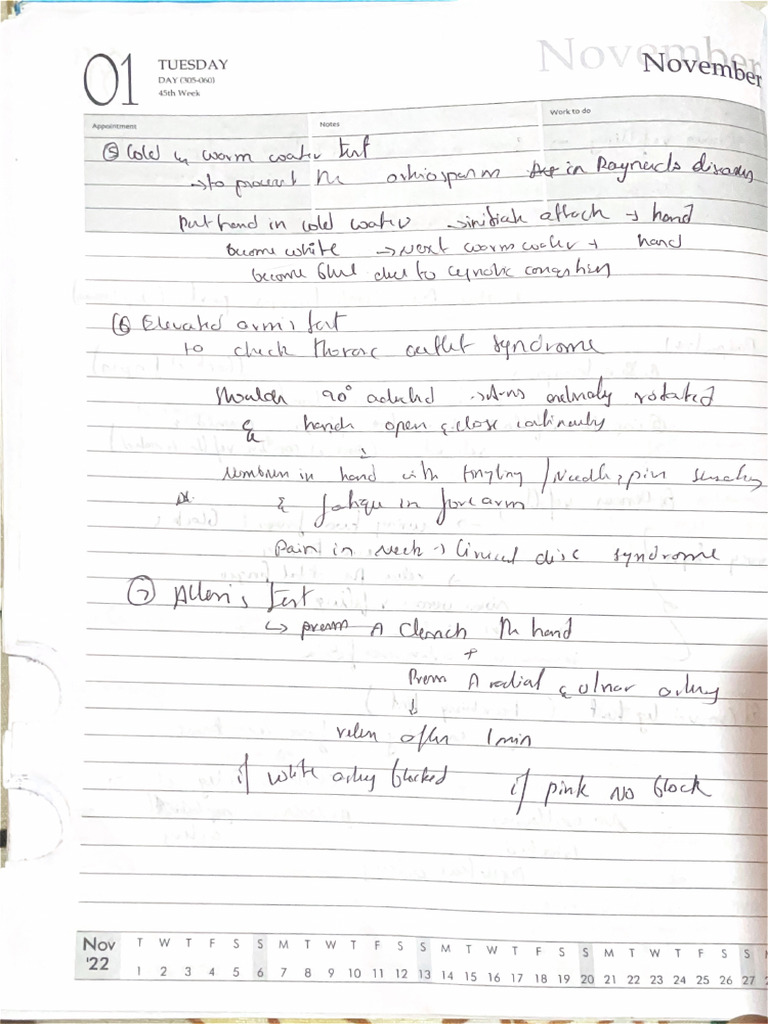 01 TUESDAY
DAY (305-060)
45th Week
November November
Appointment Notes Work to do
⑤ Cold & warm water Test
→ to the in Raynaud's disease
Put hand in cold water → initiate attack → hand
become white → Next warm water → hand
become blue due to congestion
⑥ Elevated arm's test
to check Thoracic outlet syndrome
90° → Arms rotated
& hands open & close continuously
↓
in hand with / Needle, pin
& fatique in forearm
Pain in Neck → disc syndrome
⑦ Allen's Test
↳ A Clench the hand
+
Press A radial & ulnar artery
↓
after 1 min
if white artery blocked if pink No block
Nov T W T F S S M T W T F S S M T W T F S S M T W T F S S
'22 1 2 3 4 5 6 7 8 9 10 11 12 13 14 15 16 17 18 19 20 21 22 23 24 25 26 27